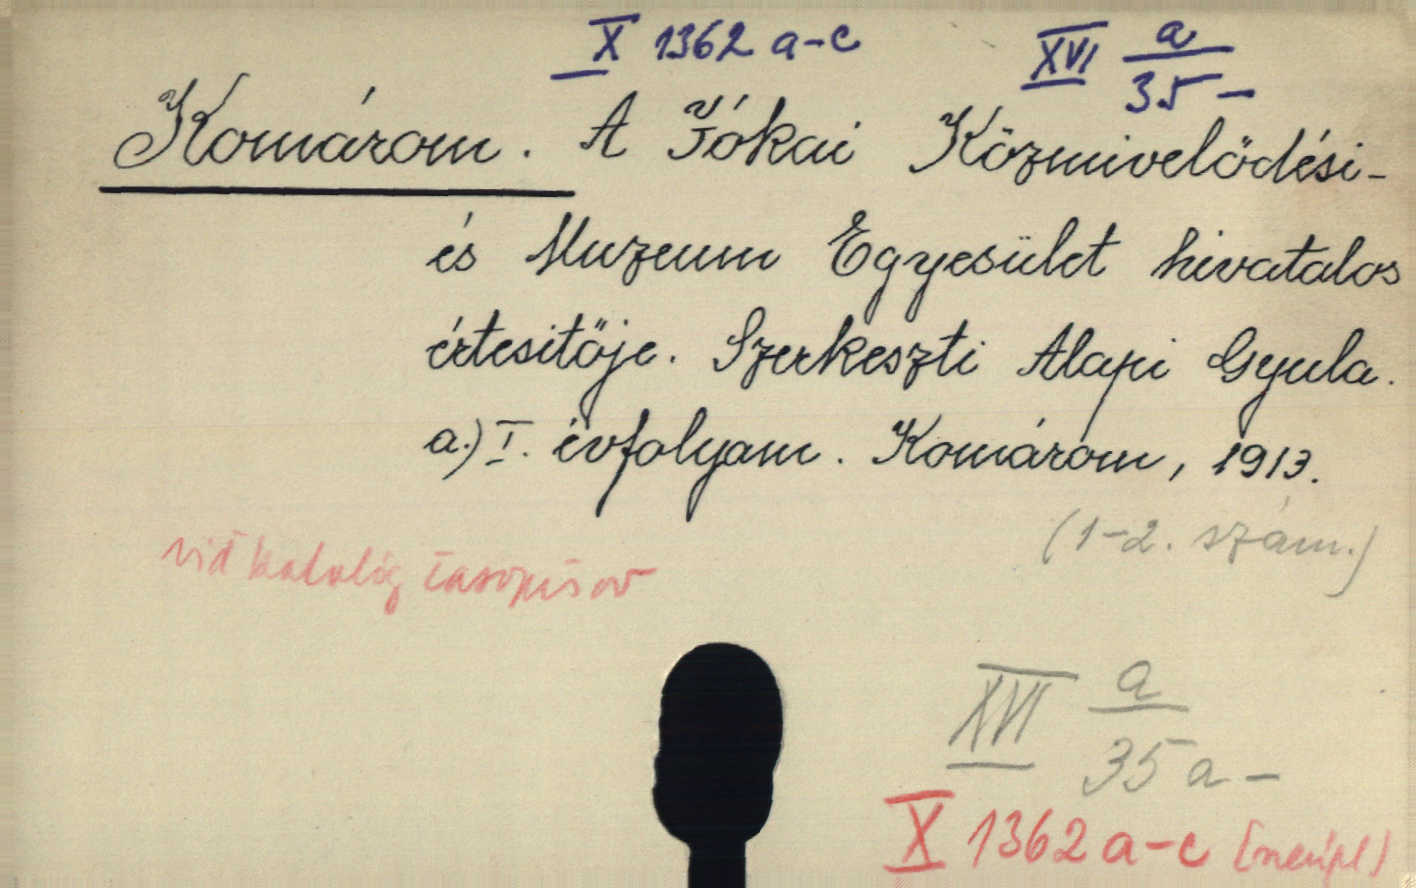 X 1362 a-c
XVI a/35-
Komárom. A Jókai Közmivelődési-
és Muzeum Egyesület hivatalos
értesitője. Szerkeszti Alapi Gyula.
a.) I. évfolyam. Komárom, 1913.
(1-2. szám.)
viď katalóg časopisov
XVI a/35 a-
X 1362 a-c (neúpl)